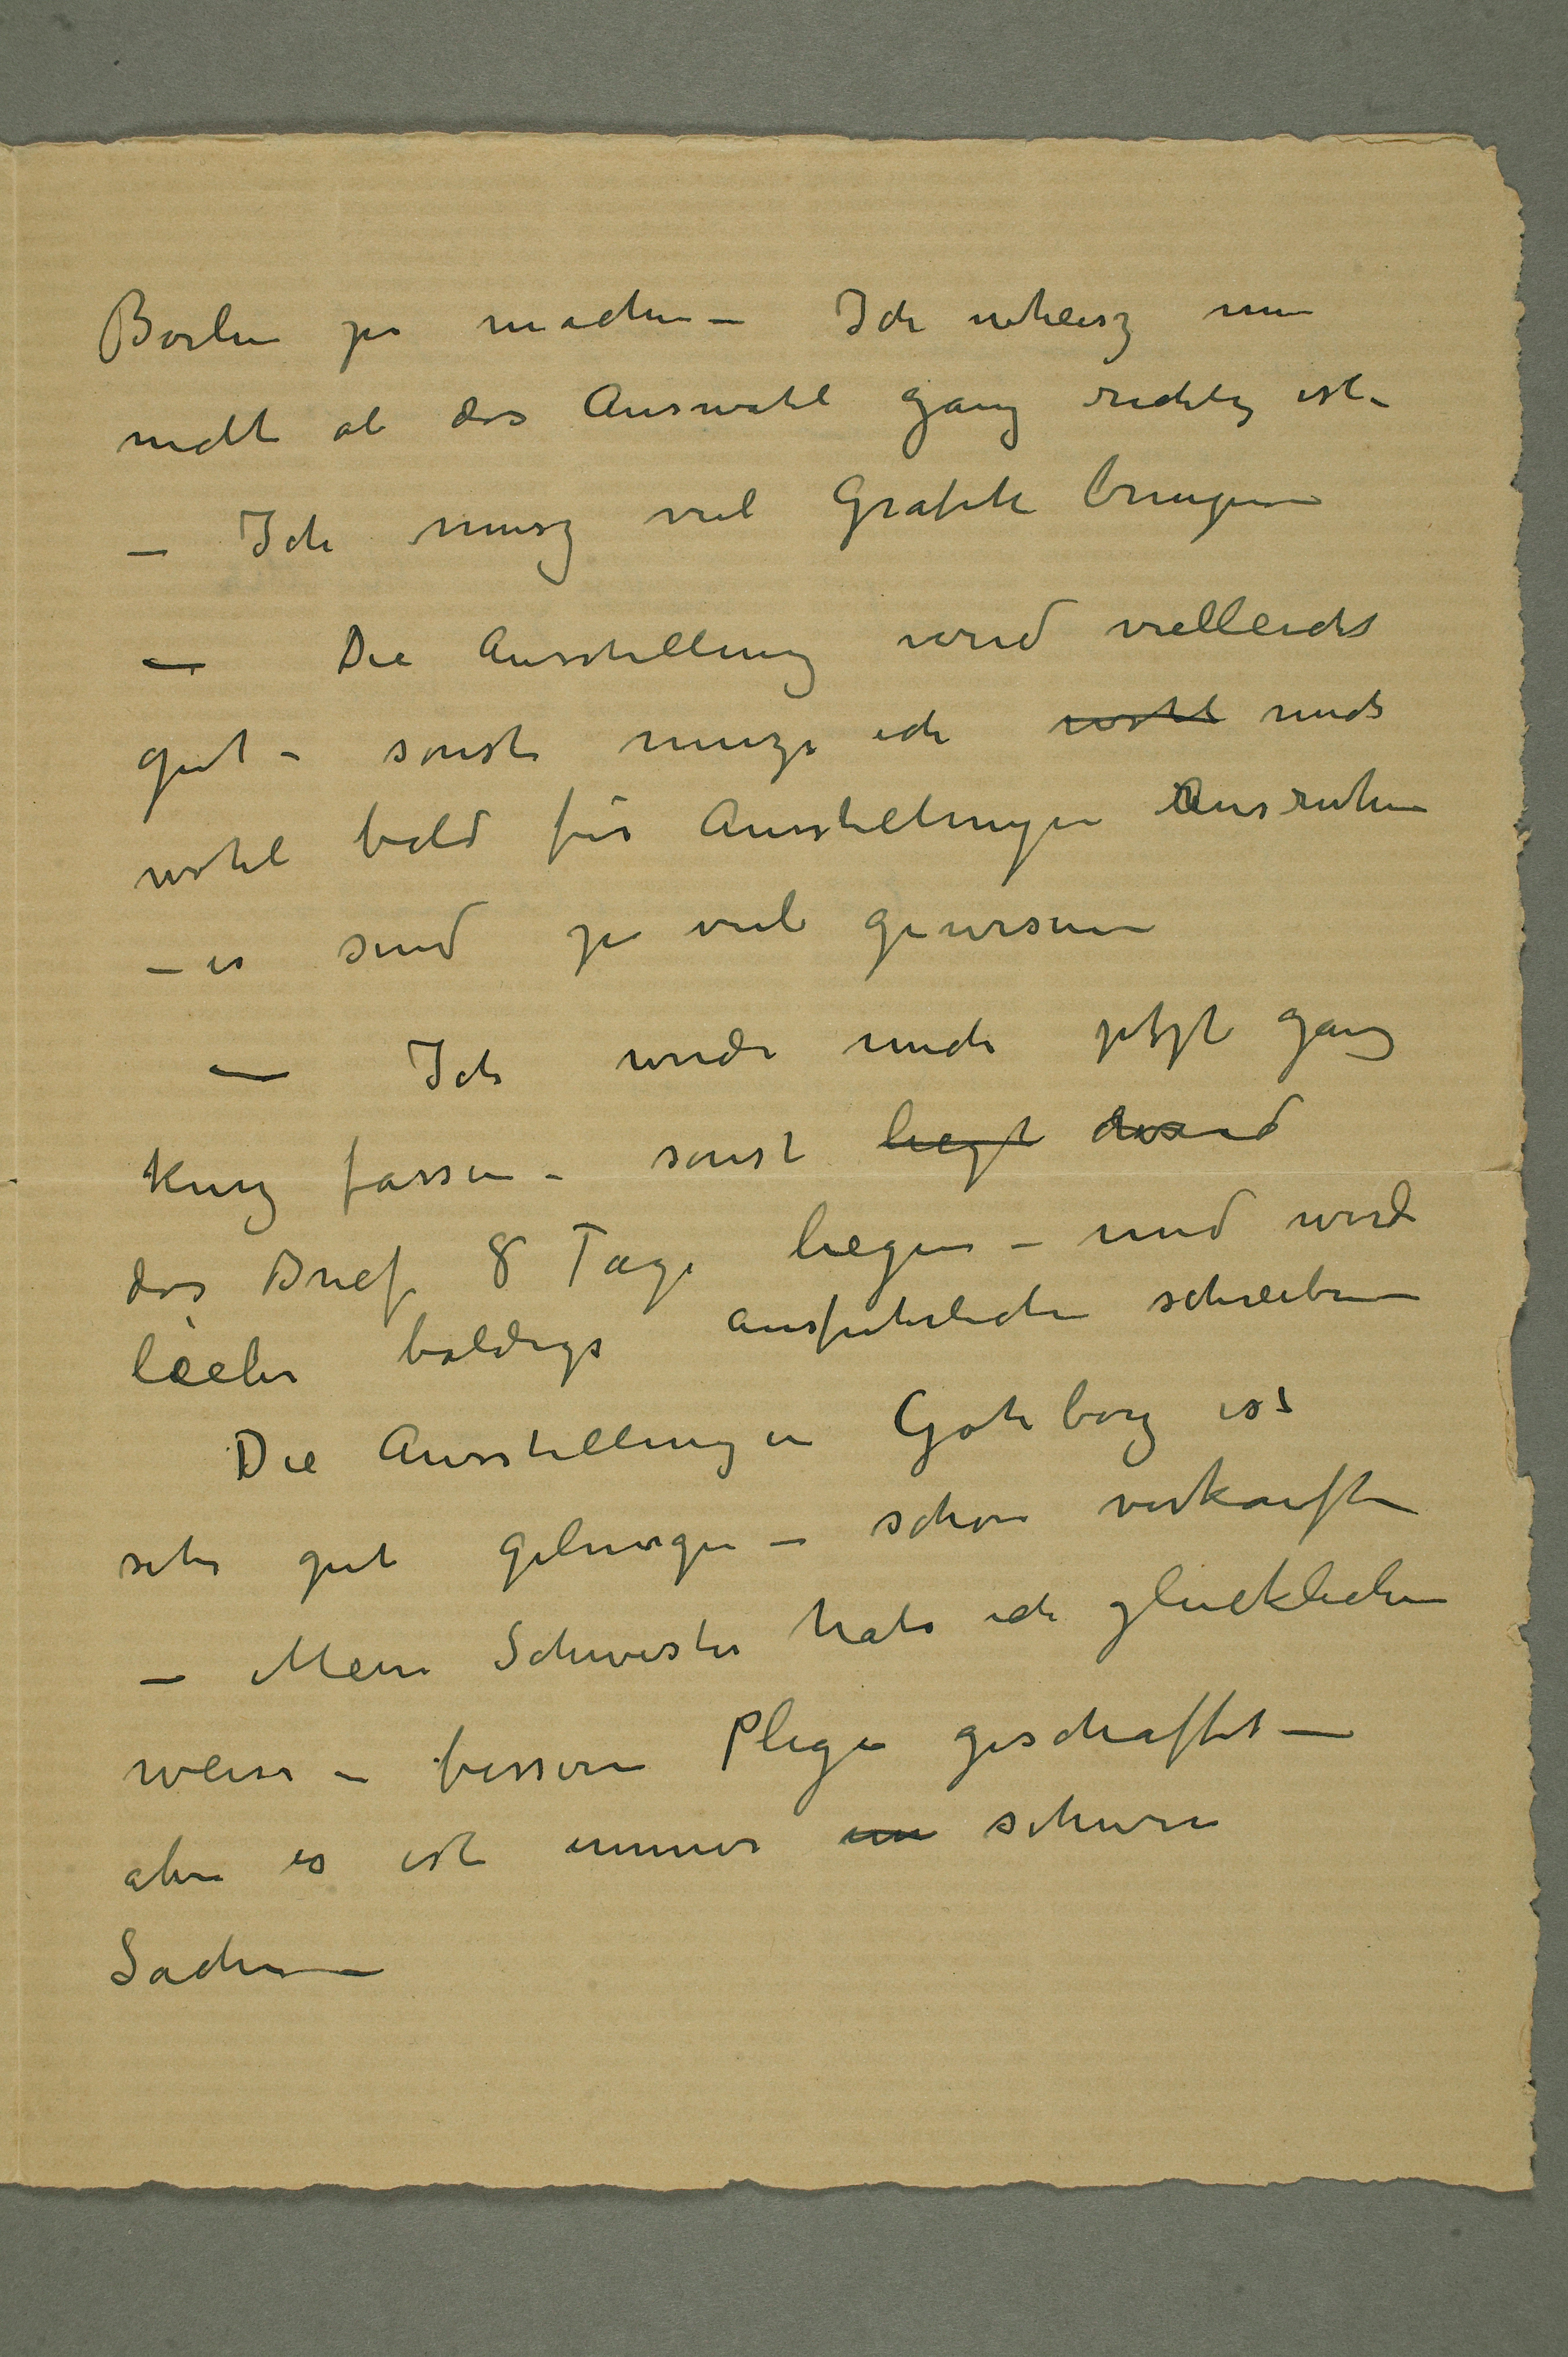 Berlin zu machen – Ich weheisz nun
nicht ob das Auswahl ganz richtig ist –
– Ich musz viel Grafik bringen
– Die Ausstellung wird vielleicht
gut – sonst muzs ich wohl mich
wohl bald für Ausstellungen Ausruhen
– es sind zu viel gewesen
– Ich werde mich jetzt ganz
kurz fassen – sonst liegt wird
das Brief 8 Tage liegen – und werde
lieber baldigs ausfuhrlicher schreiben
Die Ausstellung in Goteborg ist
sehr gut gelungen – schon verkauft
– Meine Schwester habe ich glucklicher
weise – bessere Plege geschafft –
aber es ist immer im schwere
Sache –